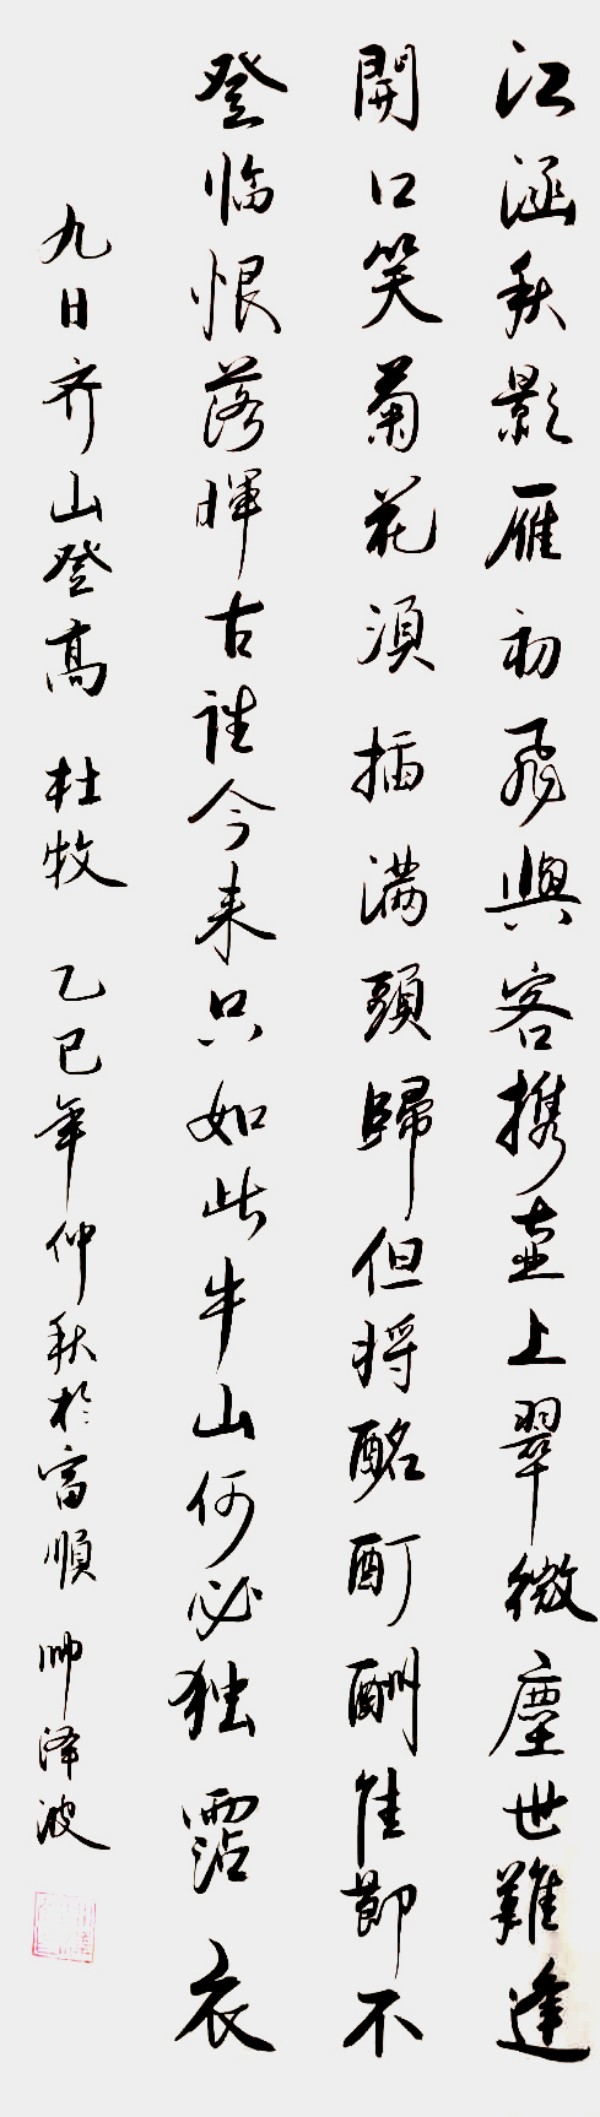 江涵秋影雁初飛與客携壺上翠微塵世難逢
開口笑菊花須插滿頭歸但将酩酊酬佳節不
登临恨落暉古誰今来只如此牛山何必独霑衣
九日齐山登高 杜牧 乙巳年仲秋於富順 帅泽波